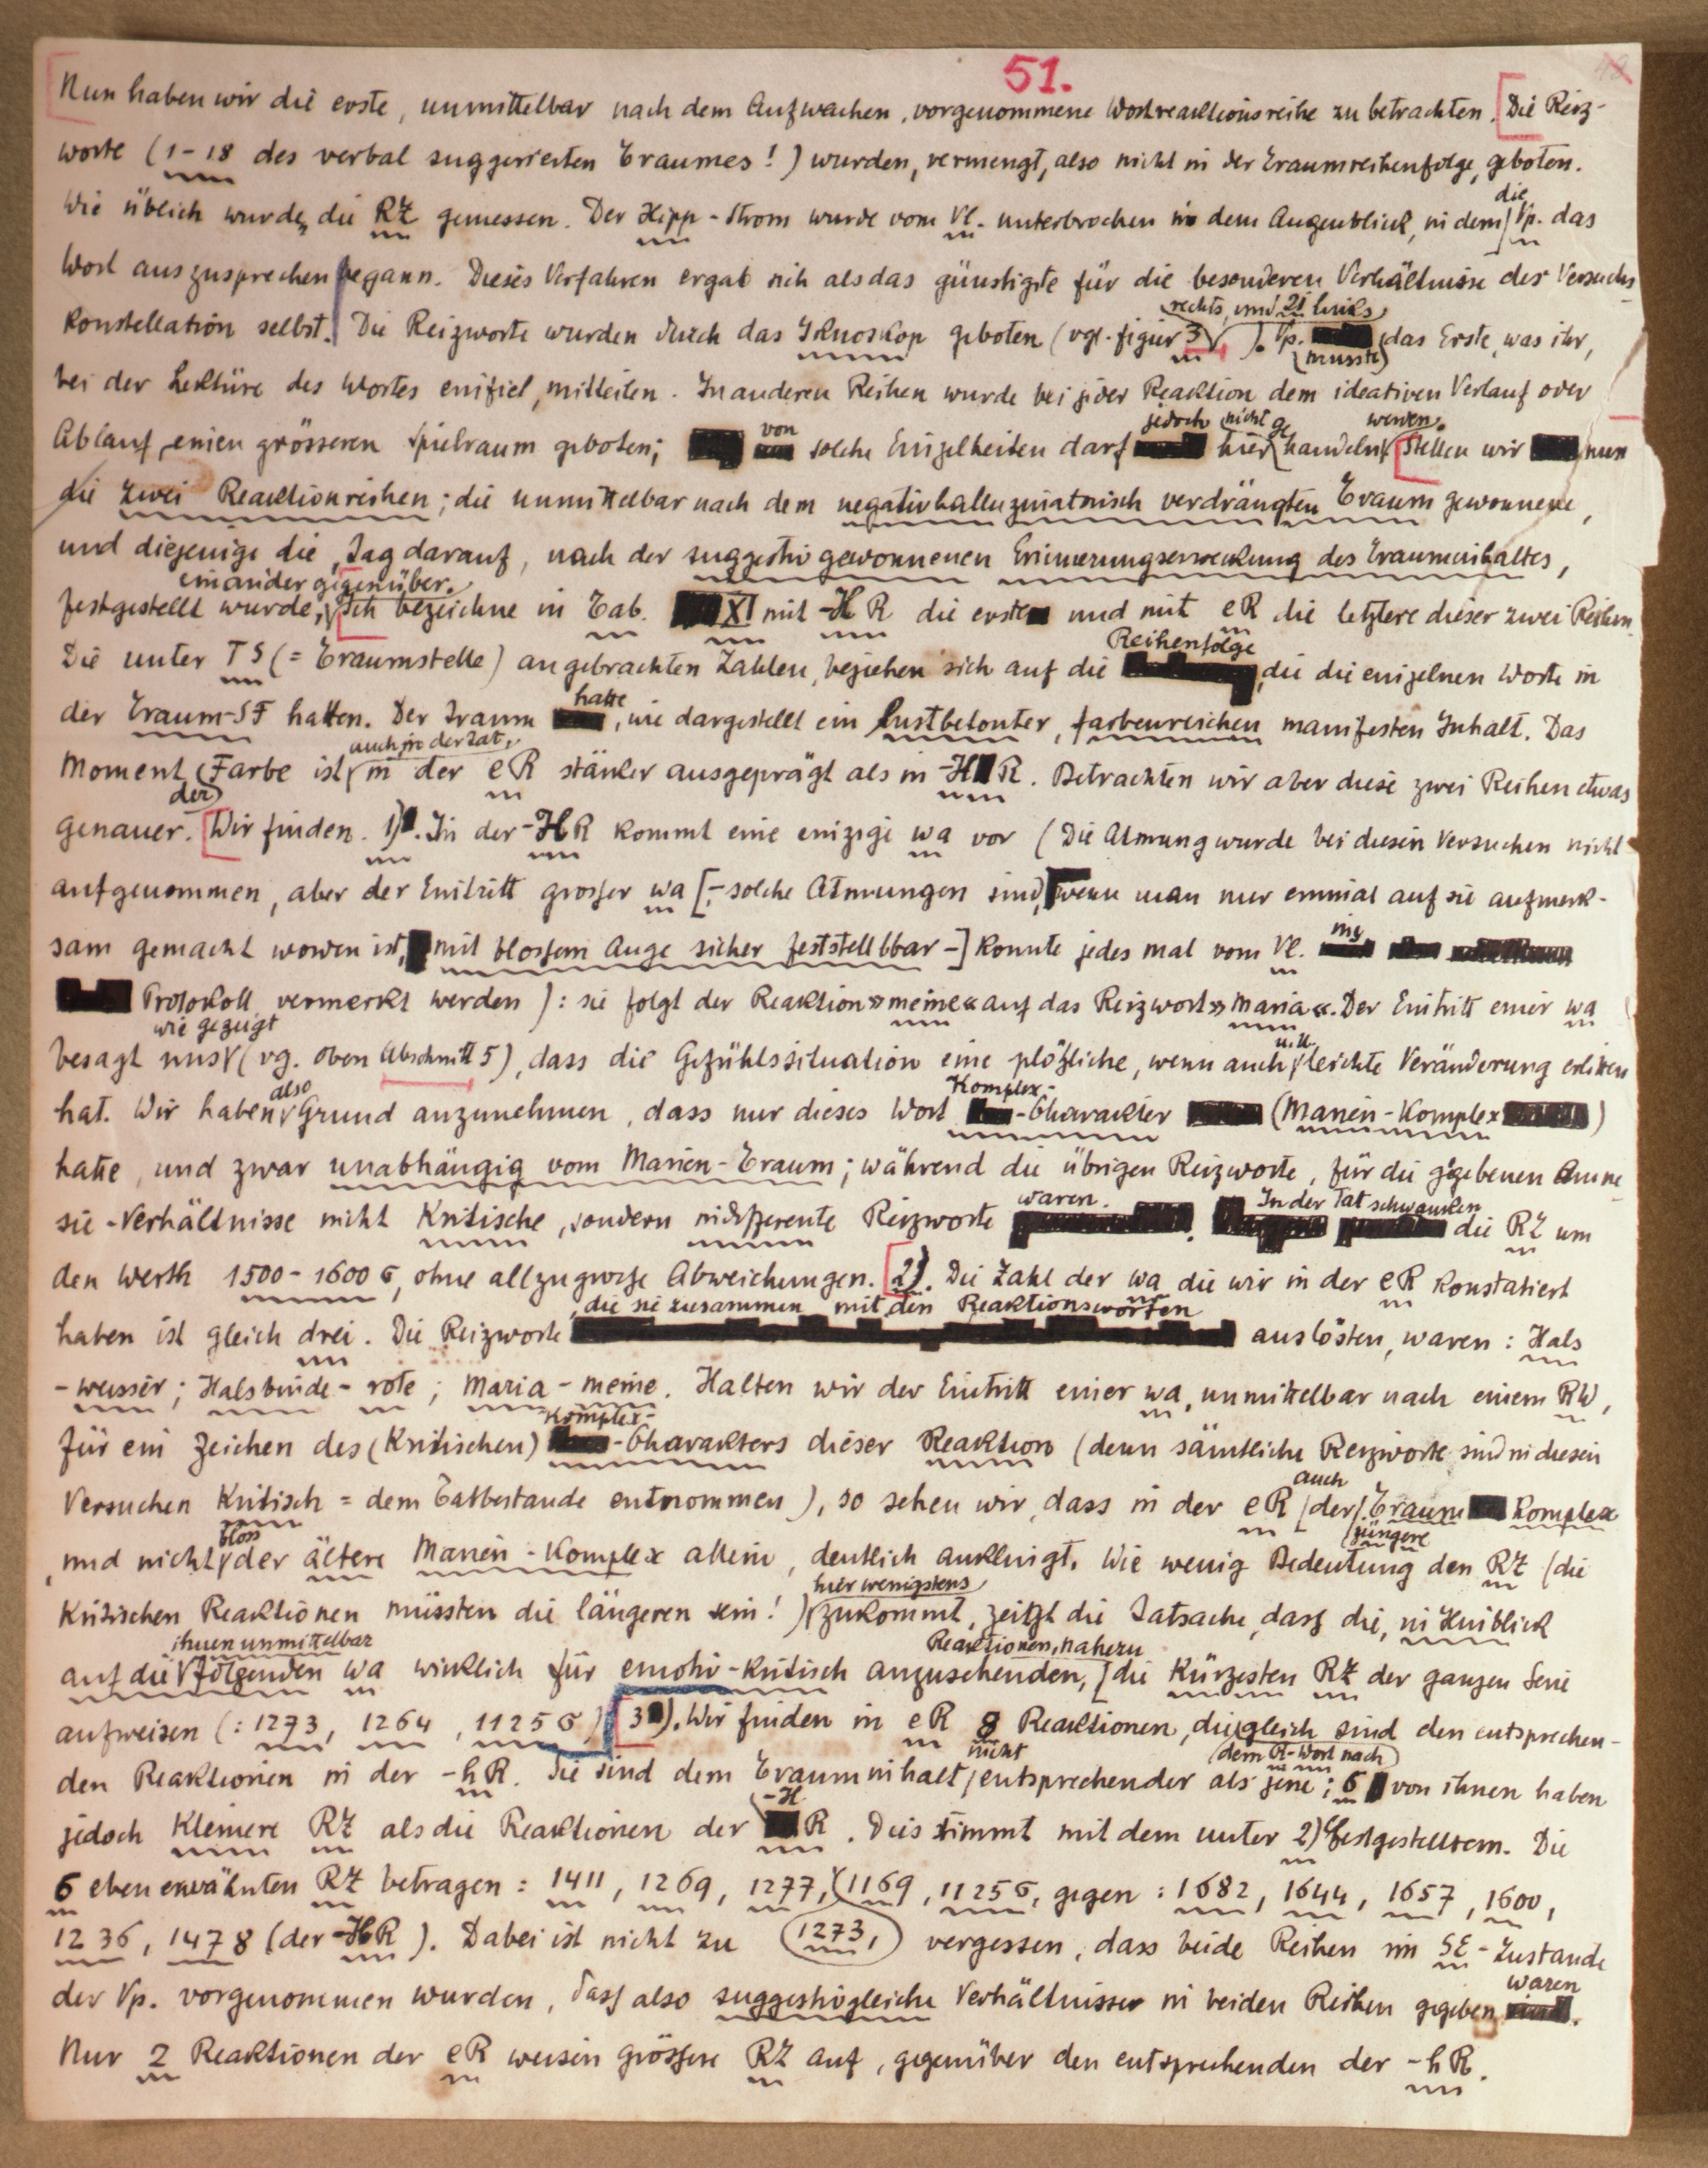 51.
Nun haben wir die erste, unmittelbar nach dem Aufwachen, vorgenommene Wortreaktionsreihe zu betrachten. [Die Reiz-
worte (1-18 des verbal suggerierten Traumes!) wurden, vermengt, also nicht in der Traumreihenfolge, geboten.
Wie üblich wurde die RZ gemessen. Der Hipp-Strom wurde vom Vl. unterbrochen in dem Augenblick, in dem die Vp. das
Wort auszusprechen begann. Dieses Verfahren ergab sich als das günstigste für die besonderen Verhältnisse der Versuchs-
konstellation selbst. Die Reizworte wurden durch das Iknoskop geboten (vgl. figur 3 rechts, und 21 links). Vp. musste das Erste, was ihr,
bei der Lektüre des Wortes einfiel, mitteilen. In anderen Reihen wurde bei jeder Reaktion dem ideativen Verlauf oder
Ablauf einen grösseren Spielraum geboten; von solche Einzelheiten darf jedoch hier nicht gehandelt werden. [Stellen wir nun
die zwei Reaktionreihen; die unmittelbar nach dem negativhalluzinatorisch verdrängten Traum gewonnene,
und diejenige die, Tag darauf, nach der suggestiv gewonnenen Erinnerungserweckung des Trauminhaltes,
festgestellt wurde, einander gegenüber. Ich bezeichne in Tab. XI mit -HR die erste und mit eR die letztere dieser zwei Reihen.
Die unter TS (= Traumstelle) angebrachten Zahlen, beziehen sich auf die Reihenfolge, die die einzelnen Worte in
der Traum-SF hatten. Der Traum hatte, wie dargestellt ein lustbetonter, farbenreichen manifesten Inhalt. Das
Moment der Farbe ist auch in der Tat, in der eR stärker ausgeprägt als in -HR. Betrachten wir aber diese zwei Reihen etwas
genauer. [Wir finden. 1). In der -HR kommt eine einzige wa vor (Die Atmung wurde bei diesen Versuchen nicht
aufgenommen, aber der Eintritt grosser wa [- solche Atmungen sind, wenn man nur einmal auf sie aufmerk-
sam gemacht worden ist, mit blossem Auge sicher feststellbbar -] konnte jedes mal vom Vl. ins
Protokoll vermerkt werden): sie folgt der Reaktion »meine« auf das Reizwort »Maria«. Der Eintritt einer wa
besagt uns wie gezeigt (vg. oben Abschnitt 5), dass die Gefühlssituation eine plötzliche, wenn auch u.U. leichte Veränderung erlitten
hat. Wir haben also Grund anzunehmen, dass nur dieses Wort Komplex-Charakter (Marien-Komplex)
hatte, und zwar unabhängig vom Marien-Traum; während die übrigen Reizworte, für die gegebenen Amne-
sie-Verhältnisse nicht Kritische, sondern indifferente Reizworte waren. In der Tat schwanken die RZ um
den Werth 1500-1600 σ, ohne allzugrosse Abweichungen. [2). Die Zahl der wa die wir in der eR konstatiert
haben ist gleich drei. Die Reizworte, die sie zusammen mit den Reaktionsworten auslösten, waren: Hals
-weisser; Halsbinde-rote; Maria-meine. Halten wir der Eintritt einer wa, unmittelbar nach einem RW,
für ein Zeichen des (Kritischen) Komplex-Charakters dieser Reaktion (denn sämtliche Reizworte sind in diesen
Versuchen Kritisch = dem Tatbestande entnommen), so sehen wir, dass in der eR auch der jüngere Traum Komplex
und nicht bloss der ältere Marien-Komplex allein, deutlich anklingt. Wie wenig Bedeutung den RZ (die
Kritischen Reaktionen müssten die längeren sein!) hier wenigstens zukommt, zeigt die Tatsache, dass die, in Hinblick
auf die ihnen unmittelbar folgenden wa wirklich für emotiv-kritisch anzusehenden, Reaktionen, nahezu die kürzesten RZ der ganzen Serie
aufweisen (: 1273, 1264, 1125 σ) [3). Wir finden in eR 8 Reaktionen, die nicht gleich sind den entsprechen-
den Reaktionen in der -hR. Sie sind dem Trauminhalt entsprechender dem R-Wort nach als jene; 6 von ihnen haben
jedoch Kleinere RZ als die Reaktionen der -HR. Dies stimmt mit dem unter 2) festgestelltem. Die
6 eben erwähnten RZ betragen: 1411, 1269, 1277, 1273, 1169, 1125 σ, gegen: 1682, 1644, 1657, 1600,
1236, 1478 (der -HR). Dabei ist nicht zu vergessen, dass beide Reihen im SE-Zustande
der Vp. vorgenommen wurden, dass also suggestivgleiche Verhältnisse in beiden Reihen gegeben waren.
Nur 2 Reaktionen der eR weisen grössere RZ auf, gegenüber den entsprechenden der -hR.